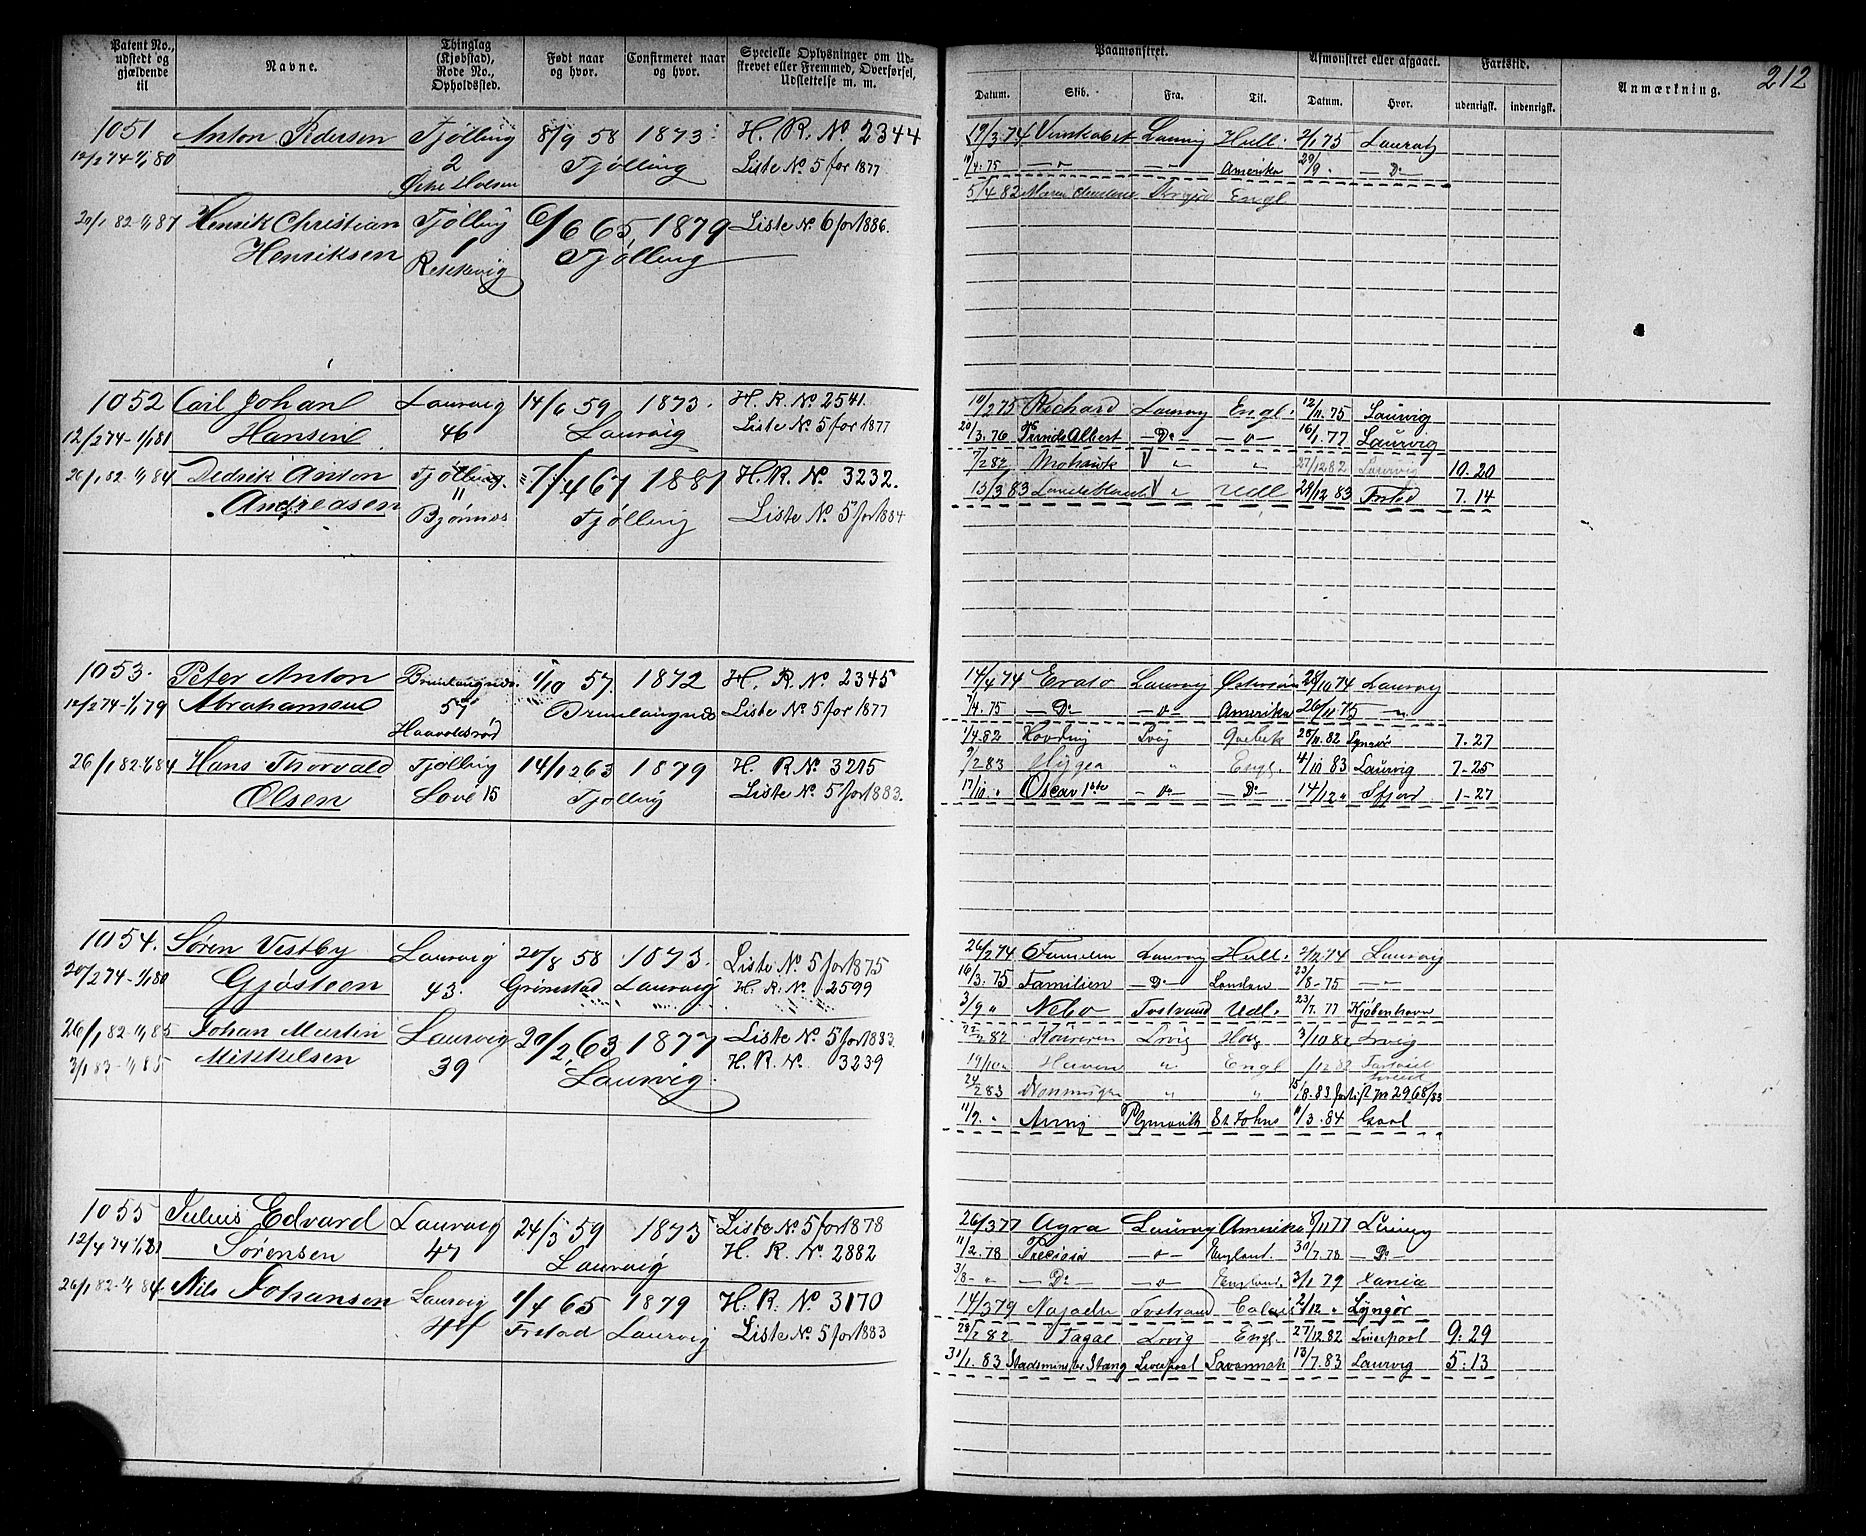 Patent No., udstedt og gjældende til
Navne.
Thinglag (Kjøbstad), Rode No., Opholdssted.
Født naar og hvor.
Confirmeret naar og hvor.
Specielle Oplysninger om Udskrevet eller Fremmed, Overførsel, Udslettelse m. m.
1051 Anton Pedersen Tjølling 8/9 58 1873 H. R. No 2344
12/2 74-1/1 80 2 Tjølling Liste No 5 for 1877
20/1 82-1/1 87 Henrik Christian Tjølling 6/6 65 1879 Liste No 6 for 1886.
Henriksen 1 Tjølling
1052 Carl Johan Laurvig 14/6 59 1873. H. R. No 2541
12/2 74-1/1 81 Hansen 46 Laurvig Liste No 5 for 1877
26/1 82-1/1 84 Dedrik Anton Tjølling 7/4 67 1881 H. R. No. 3232.
Andreasen 11 Bjønnes Tjølling Liste No. 5 for 1884
1053. Peter Anton Brunlangnæs 1/10 57. 1872 H. R. No 2345
12/2 74-1/1 79 Abrahamsen 57 Brunlangnæs Liste No. 5 for 1877
Haavoldsrød
26/1 82-1/1 84 Hans Thorvald Tjølling 14/12 63 1879 H. R. No. 3215
Olsen 15 Tjølling Liste No. 5 for 1883.
1054. Søren Vestby Laurvig 20/8 58 1873. Liste No 5 for 1875
20/2 74-1/1 80 Gjøsteen 43. Grimstad Laurvig H. R. No 2599
26/1 82-1/1 85 Johan Martin Laurvig 20/2 63 1877 Liste No. 5 for 1883.
3/1 83-1/1 85 Mikkelsen 39 Laurvig. H. R. No. 3239
1055 Julius Edvard Laurvig 24/3 59 1873 Liste No 5 for 1878
12/4 74 Sørensen 47 Laurvig H. R. No. 2882
26/1 82-1/1 84 Nils Johansen Laurvig 1/4 65 1879 H. R. No. 3170
44 Frstad Laurvig Liste No. 5 for 1883
212
Paamønstret.
Afmønstret eller afgaaet.
Fartstid.
Anmærkning.
Datum. Skib. Fra. Til. Datum. Hvor. udenrigsk. indenrigsk.
19/3 74 Laurvig Hull. 2/1 75 Laurvig
10/4. 75 Amerika 29/9 Do
5/4 82 Engl
10/2 75 Richard Laurvig Engl. 12/11. 75 Laurvig
20/3. 76 Prinds Albert Do 16/1. 77 Laurvig
7/2 82 Mohawk 27/12 82 Laurvig 10. 20
13/3 83 Udl 28/12 83 Frstad 7. 14
14/4 74 Erato Laurvig Østersøen 28/10 74 Laurvig
7/4. 75 Do Amerika 26/11 75
1/4. 82 Qvebek 28/11. 82 7. 27
9/2 83 Engl. 4/10 83 Laurvig 7-25
17/10 Oscar 1ste Do 14/12 Sfjord 1-27
26/2 74 Familien Laurvig Hull. 2/12. 74 Laurvig
16/3. 75 Familien Do London 23/8-75
3/9 Nebo Fostrand Udl. 23/7. 77 Kjøbenhavn
82 Lrvig 3/10 82 Lrvig
19/10 Engl 12 82
24/2 83 15/8. 83 2968/83
11/9. Anny Plymouth St Johns 11/3. 84
26/3 77 Agra Laurvig Amerika 8/11 77 Laurvig
11/2. 78 Preciosa England. 30/7. 78 Do
3/8 Do England. 3/1 79 Xania
14/3 79 Najaden Fostrand Calais 2/12 Lyngør
28/2 82 Lrvig Engl. 27/12. 82 Liverpool 9. 29
31/1. 83 Stadsminister Stang Liverpool Savannah 13/7. 83 Laurvig 5. 13